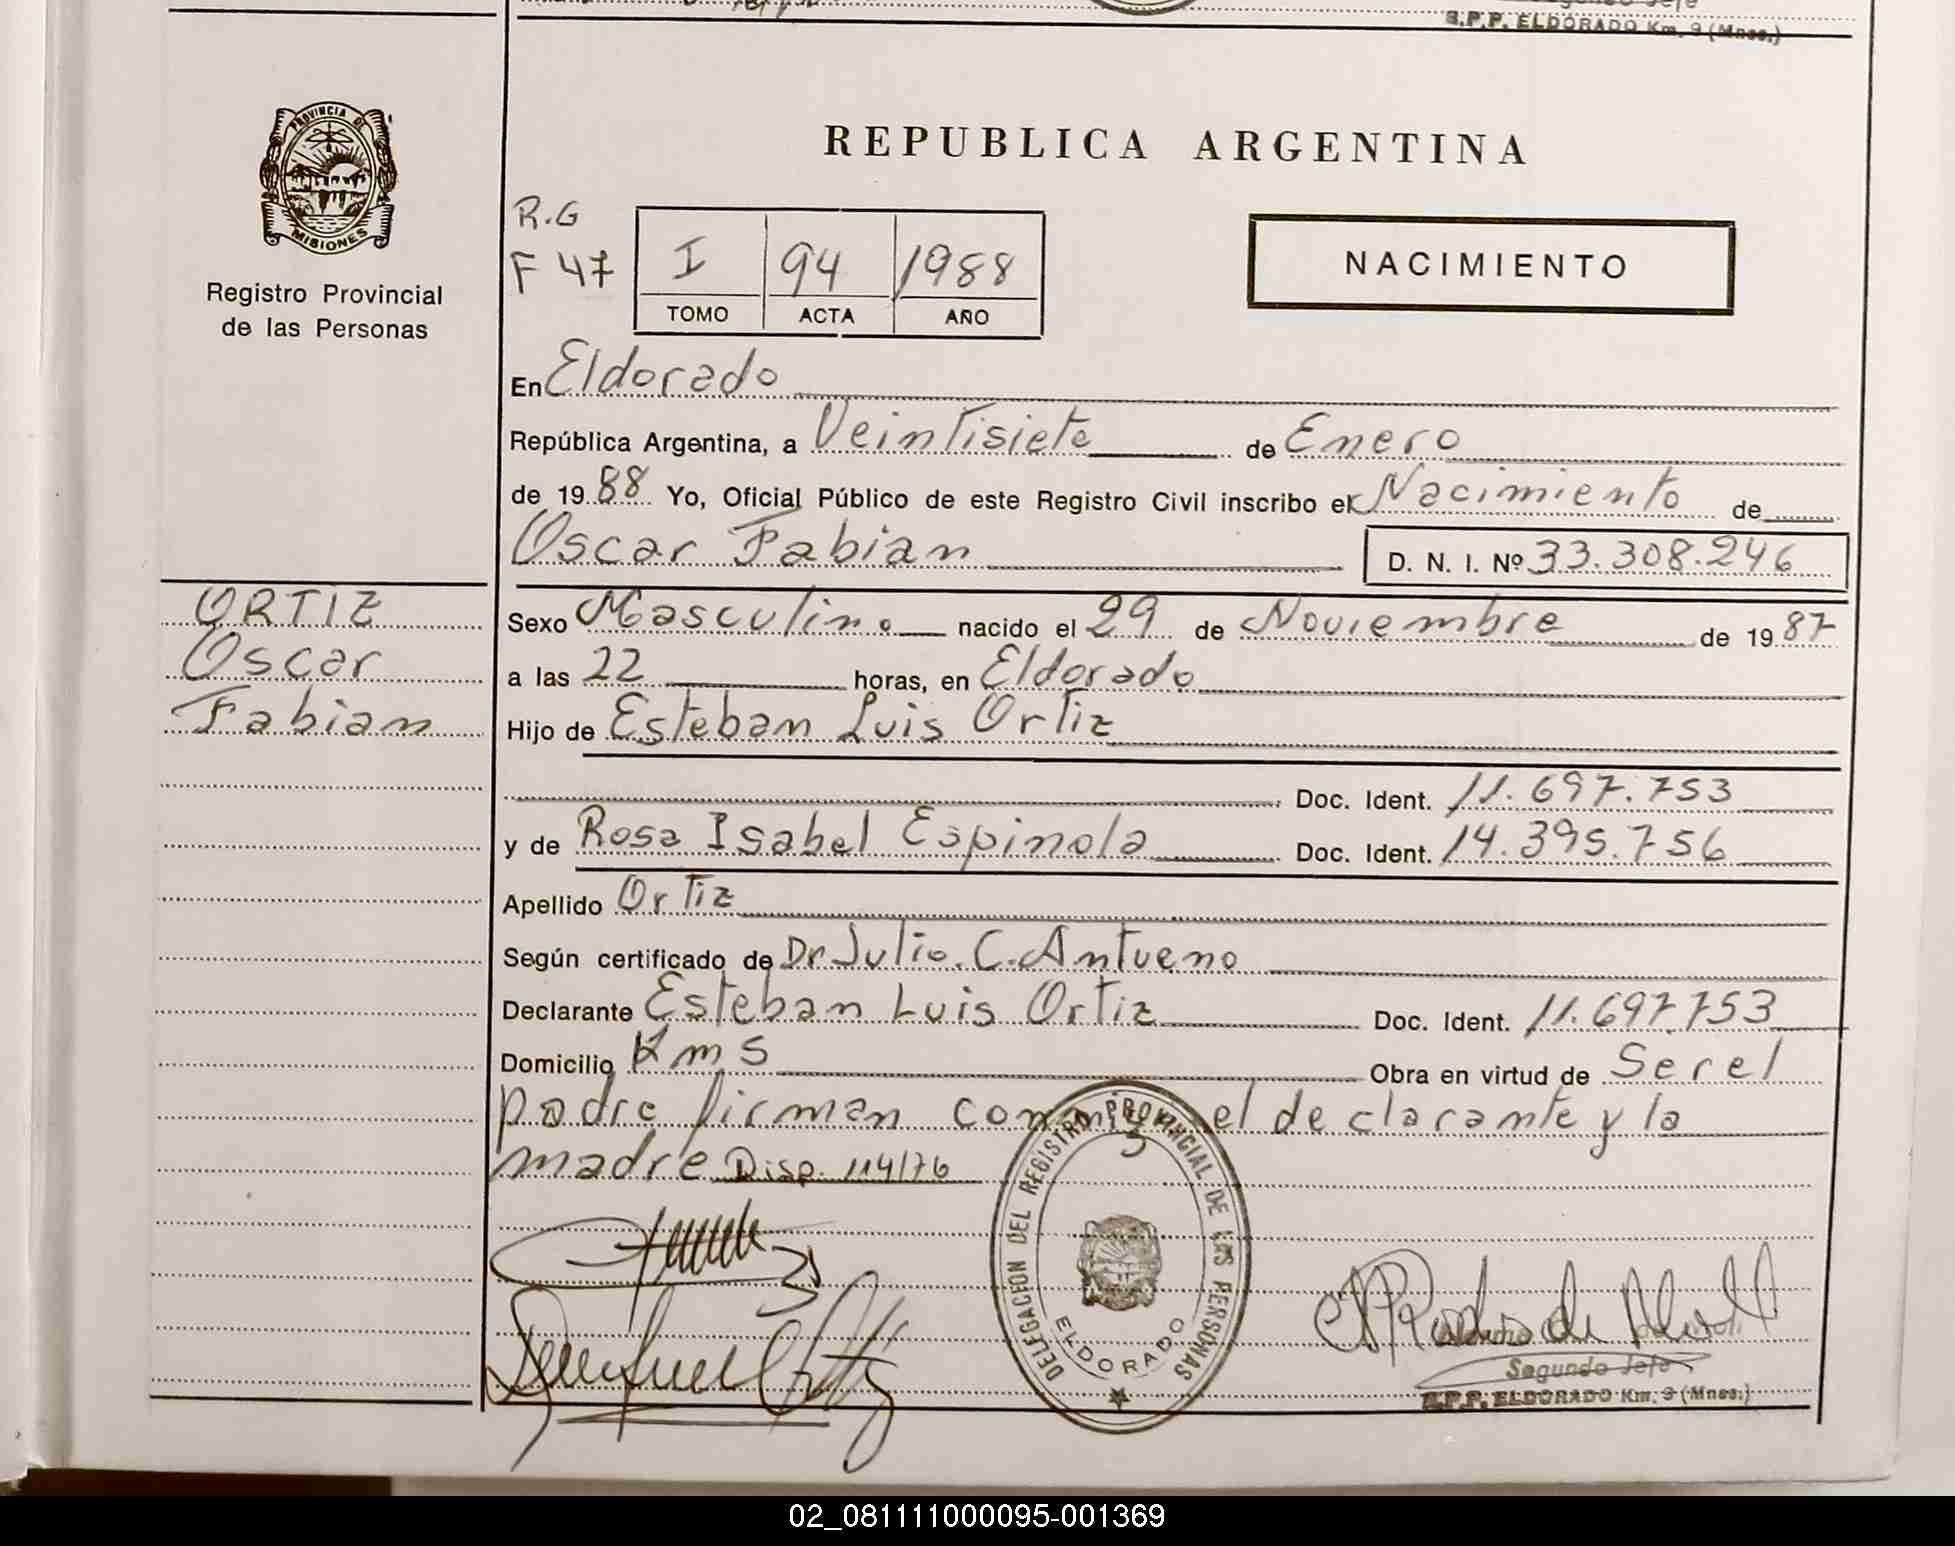 S.P.P. ELDORADO Km. 9 (Mnes.)
PROVINCIA DE
MISIONES
Registro Provincial
de las Personas
REPUBLICA ARGENTINA
R.G
F 47
I 94 1988
TOMO ACTA AÑO
NACIMIENTO
En Eldorado
República Argentina, a Veintisiete de Enero
de 19 88 Yo, Oficial Público de este Registro Civil inscribo el Nacimiento de
Oscar Fabian D. N. I. Nº 33.308.246
ORTIZ
Oscar
Fabian
Sexo Masculino nacido el 29 de Noviembre de 19 87
a las 22 horas, en Eldorado
Hijo de Esteban Luis Ortiz
Doc. Ident. 11.697.753
y de Rosa Isabel Espinola Doc. Ident. 14.395.756
Apellido Ortiz
Según certificado de Dr Julio. C. Antueno
Declarante Esteban Luis Ortiz Doc. Ident. 11.697.753
Domicilio Km 5 Obra en virtud de Ser el
padre firman conmigo el declarante y la
madre Disp. 114/76
DELEGACION DEL REGISTRO PROVINCIAL DE LAS PERSONAS
ELDORADO
Segundo Jefe
R.P.P. ELDORADO Km. 9 (Mnes.)
02_081111000095-001369